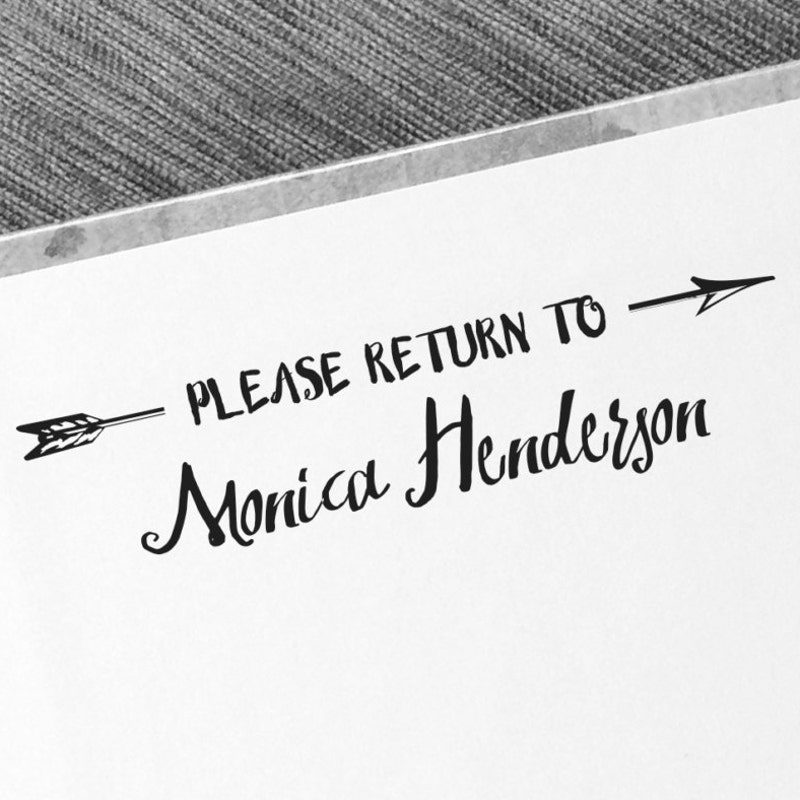 PLEASE RETURN TO
Monica Henderson